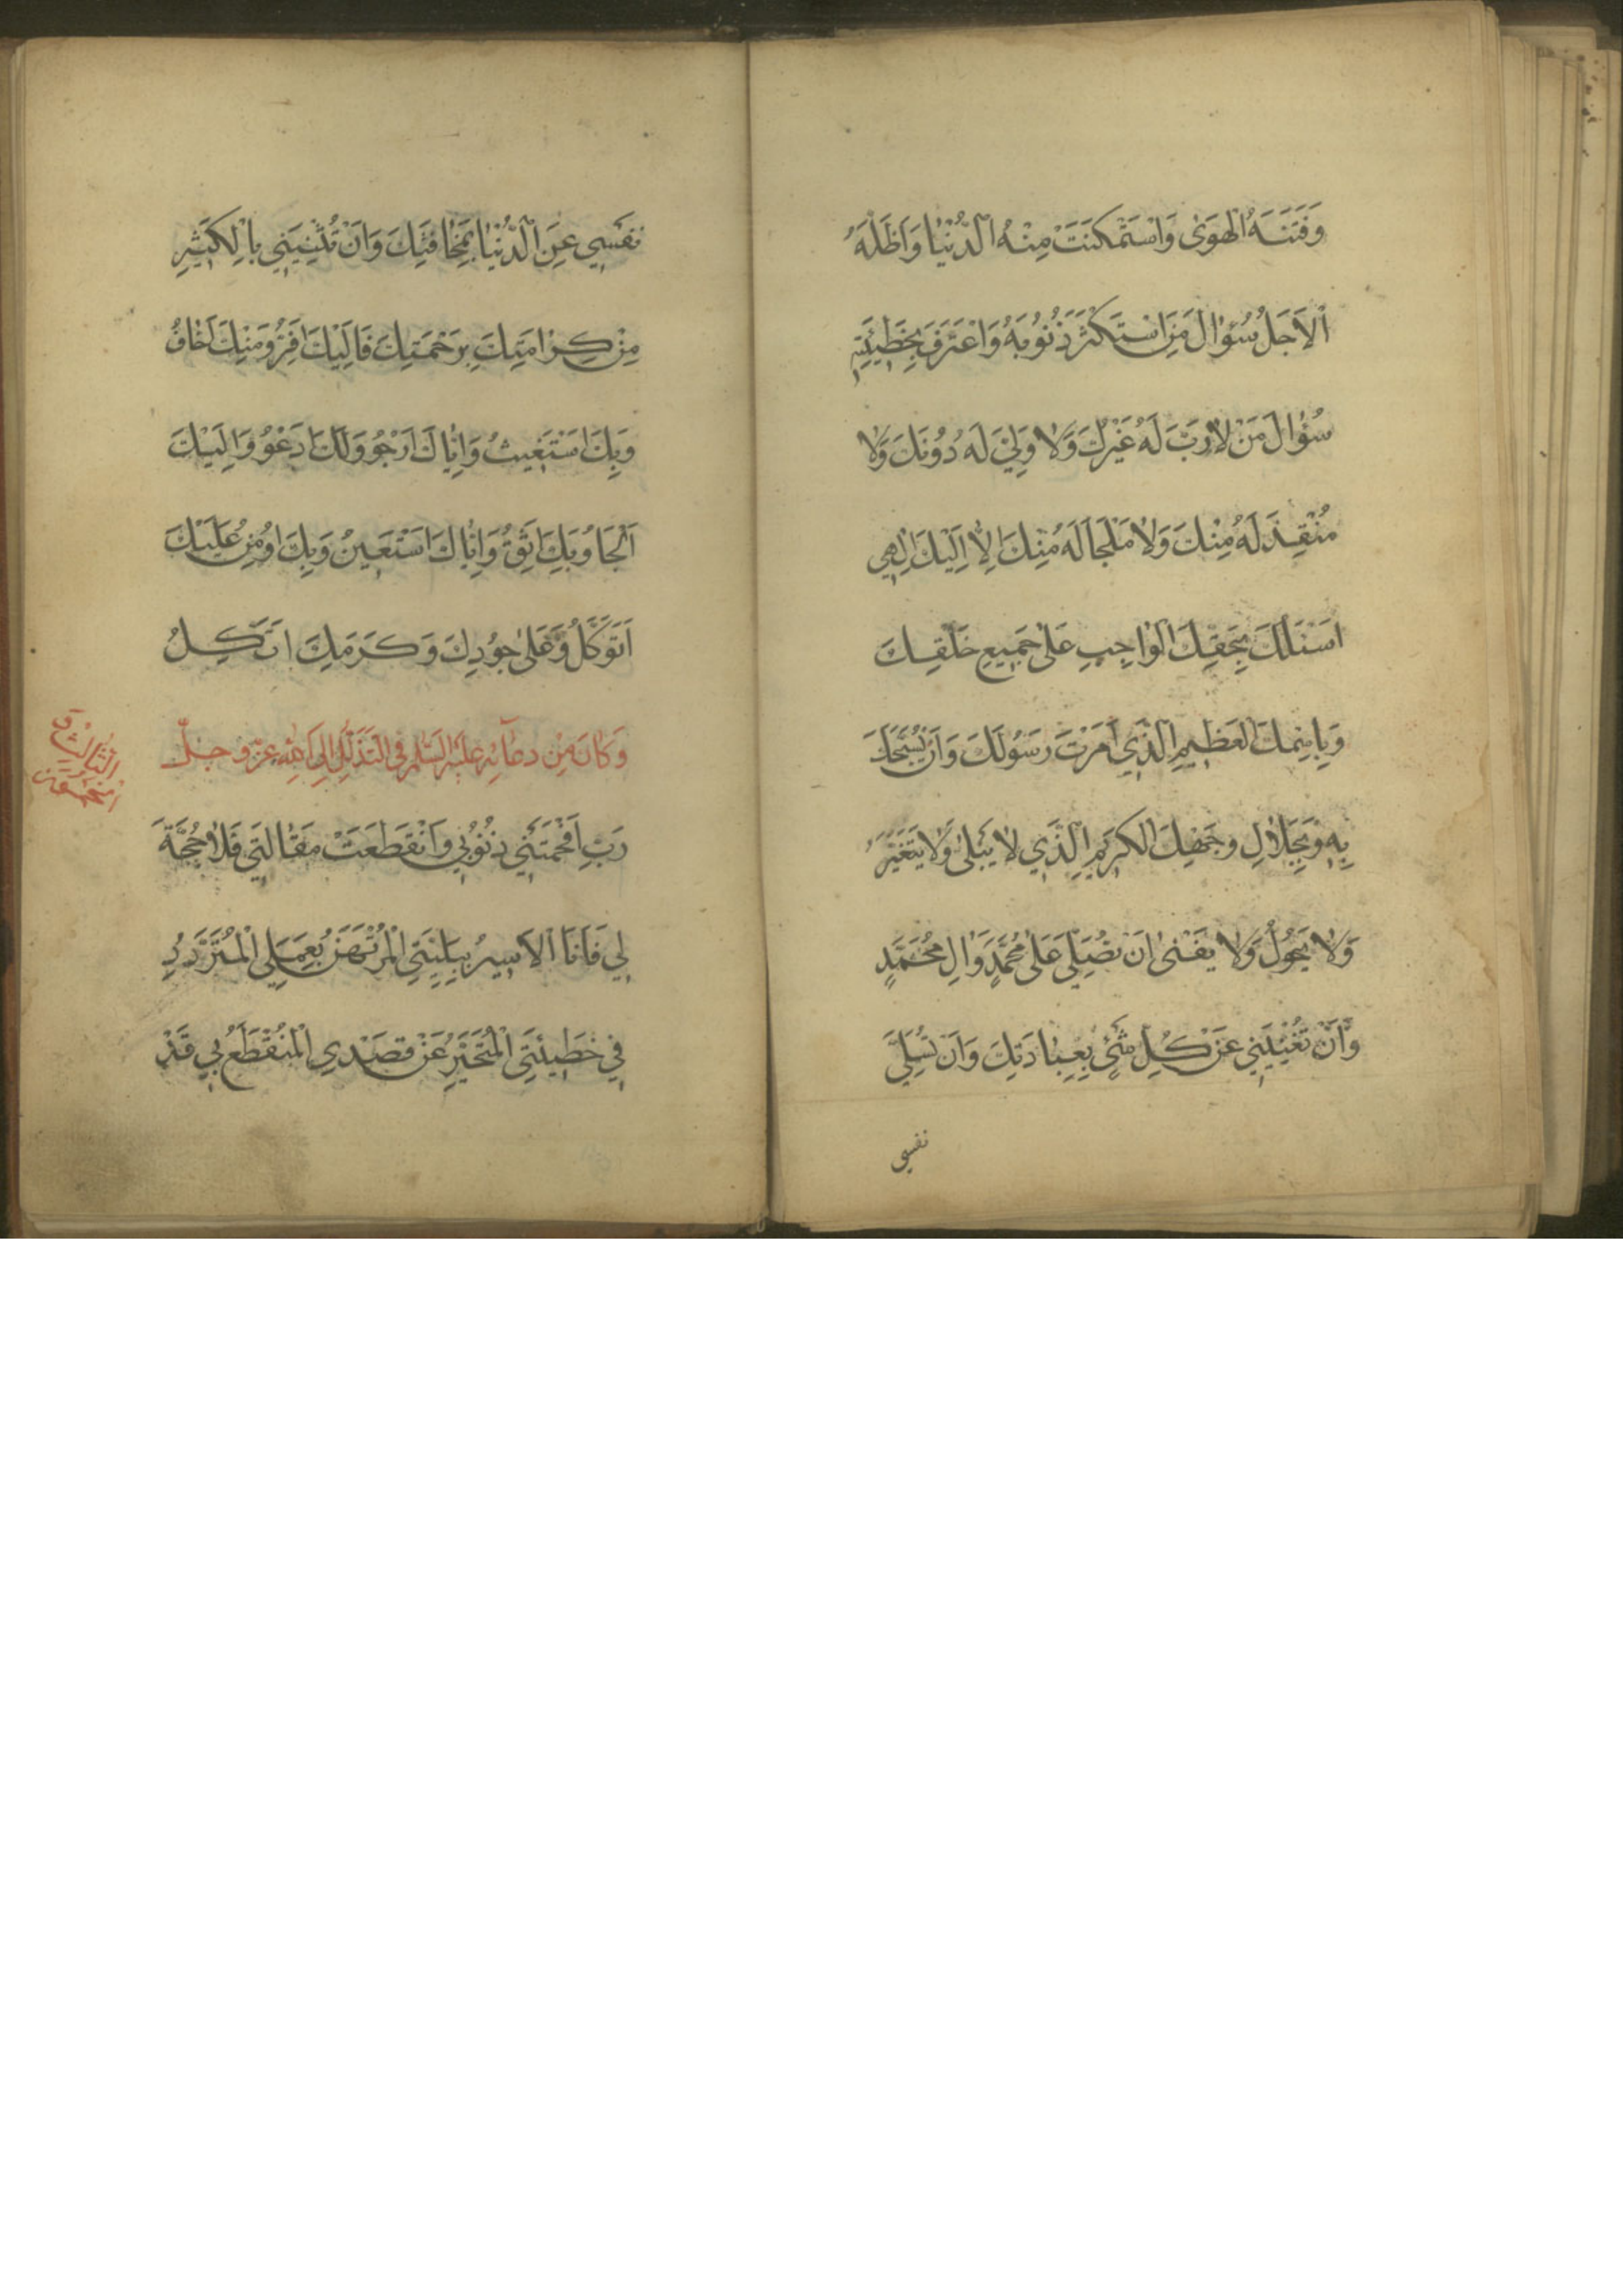 وَفَتَنَهُ الْهَوَىٰ وَاسْتَمْكَنَتْ مِنْهُ الدُّنْيَا وَاَظَلَّهُ
الْاَجَلُ سُؤَالَ مَنِ اسْتَكْثَرَ ذُنُوبَهُ وَاعْتَرَفَ بِخَطِيئَتِهِ
سُؤَالَ مَنْ لَا رَبَّ لَهُ غَيْرُكَ وَلَا وَلِيَّ لَهُ دُونَكَ وَلَا
مُنْقِذَ لَهُ مِنْكَ وَلَا مَلْجَأَ لَهُ مِنْكَ اِلَّا اِلَيْكَ اِلٰهِي
اَسْئَلُكَ بِحَقِّكَ الْوَاجِبِ عَلَىٰ جَمِيعِ خَلْقِكَ
وَبِاسْمِكَ الْعَظِيمِ الَّذِي اَمَرْتَ رَسُولَكَ وَاَنْ يُسَبِّحَكَ
بِهِ وَبِجَلَالِ وَجْهِكَ الْكَرِيمِ الَّذِي لَا يَبْلَىٰ وَلَا يَتَغَيَّرُ
وَلَا يَحُولُ وَلَا يَفْنَىٰ اَنْ تُصَلِّيَ عَلَىٰ مُحَمَّدٍ وَاٰلِ مُحَمَّدٍ
وَاَنْ تُغْنِيَنِي عَنْ كُلِّ شَيْءٍ بِعِبَادَتِكَ وَاَنْ تُسَلِّيَ
نفسي
نَفْسِي عَنِ الدُّنْيَا بِمَخَافَتِكَ وَاَنْ تُثْنِيَنِي بِالْكَثِيرِ
مِنْ كَرَامَتِكَ بِرَحْمَتِكَ فَاِلَيْكَ اَفِرُّ وَمِنْكَ اَخَافُ
وَبِكَ اَسْتَغِيثُ وَاِيَّاكَ اَرْجُو وَلَكَ اَدْعُو وَاِلَيْكَ
اَلْجَأُ وَبِكَ اَثِقُ وَاِيَّاكَ اَسْتَعِينُ وَبِكَ اُومِنُ وَعَلَيْكَ
اَتَوَكَّلُ وَعَلَىٰ جُودِكَ وَكَرَمِكَ اَتَّكِلُ
وَكَانَ مِنْ دُعَائِهِ عَلَيْهِ السَّلَامُ فِي التَّذَلُّلِ اِلَى اللهِ عَزَّ وَجَلَّ
الثالث و
الخمسون
رَبِّ اَفْحَمَتْنِي ذُنُوبِي وَانْقَطَعَتْ مَقَالَتِي فَلَا حُجَّةَ
لِي فَاَنَا الْاَسِيرُ بِبَلِيَّتِي الْمُرْتَهَنُ بِعَمَلِي الْمُتَرَدِّدُ
فِي خَطِيئَتِي الْمُتَحَيِّرُ عَنْ قَصْدِي الْمُنْقَطَعُ بِي قَدْ